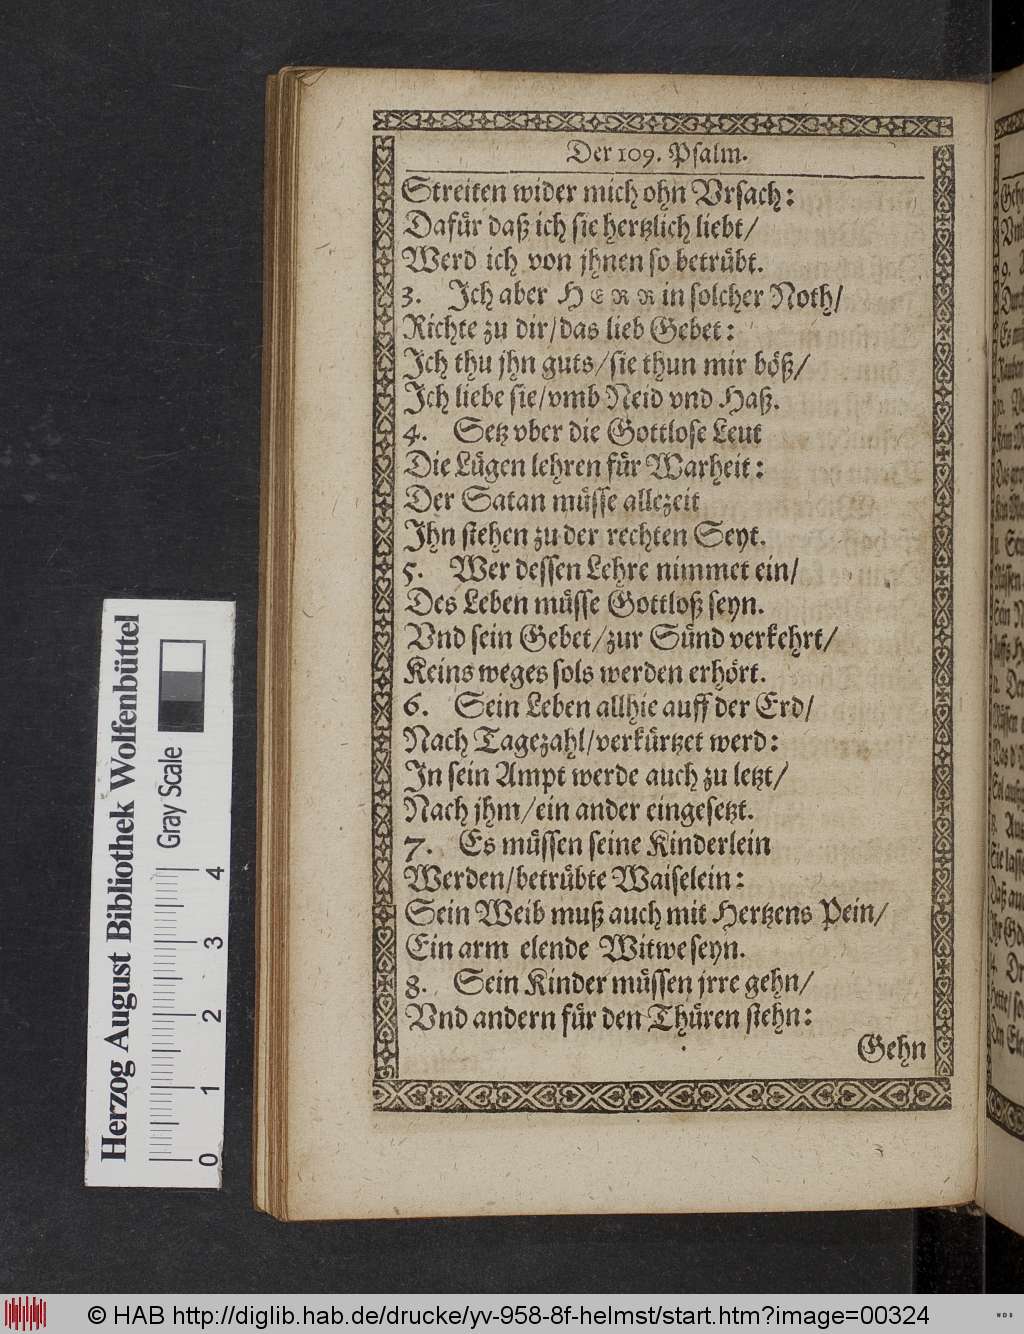 Der 109. Psalm.
Streiten wider mich ohn Vrsach:
Dafür daß ich sie hertzlich liebt/
Werd ich von jhnen so betrübt.
3. Ich aber HERR in solcher Noth/
Richte zu dir/das lieb Gebet:
Ich thu jhn guts/sie thun mir böß/
Ich liebe sie/vmb Neid vnd Haß.
4. Setz vber die Gottlose Leut
Die Lügen lehren für Warheit:
Der Satan müsse allezeit
Ihn stehen zu der rechten Seyt.
5. Wer dessen Lehre nimmet ein/
Des Leben müsse Gottloß seyn.
Vnd sein Gebet/zur Sünd verkehrt/
Keins weges sols werden erhört.
6. Sein Leben allhie auff der Erd/
Nach Tagezahl/verkürtzet werd:
In sein Ampt werde auch zu letzt/
Nach jhm/ein ander eingesetzt.
7. Es müssen seine Kinderlein
Werden/betrübte Waiselein:
Sein Weib muß auch mit Hertzens Pein/
Ein arm elende Witwe seyn.
8. Sein Kinder müssen jrre gehn/
Vnd andern für den Thüren stehn:
Gehn
Herzog August Bibliothek Wolfenbüttel
Gray Scale
0 1 2 3 4
© HAB http://diglib.hab.de/drucke/yv-958-8f-helmst/start.htm?image=00324